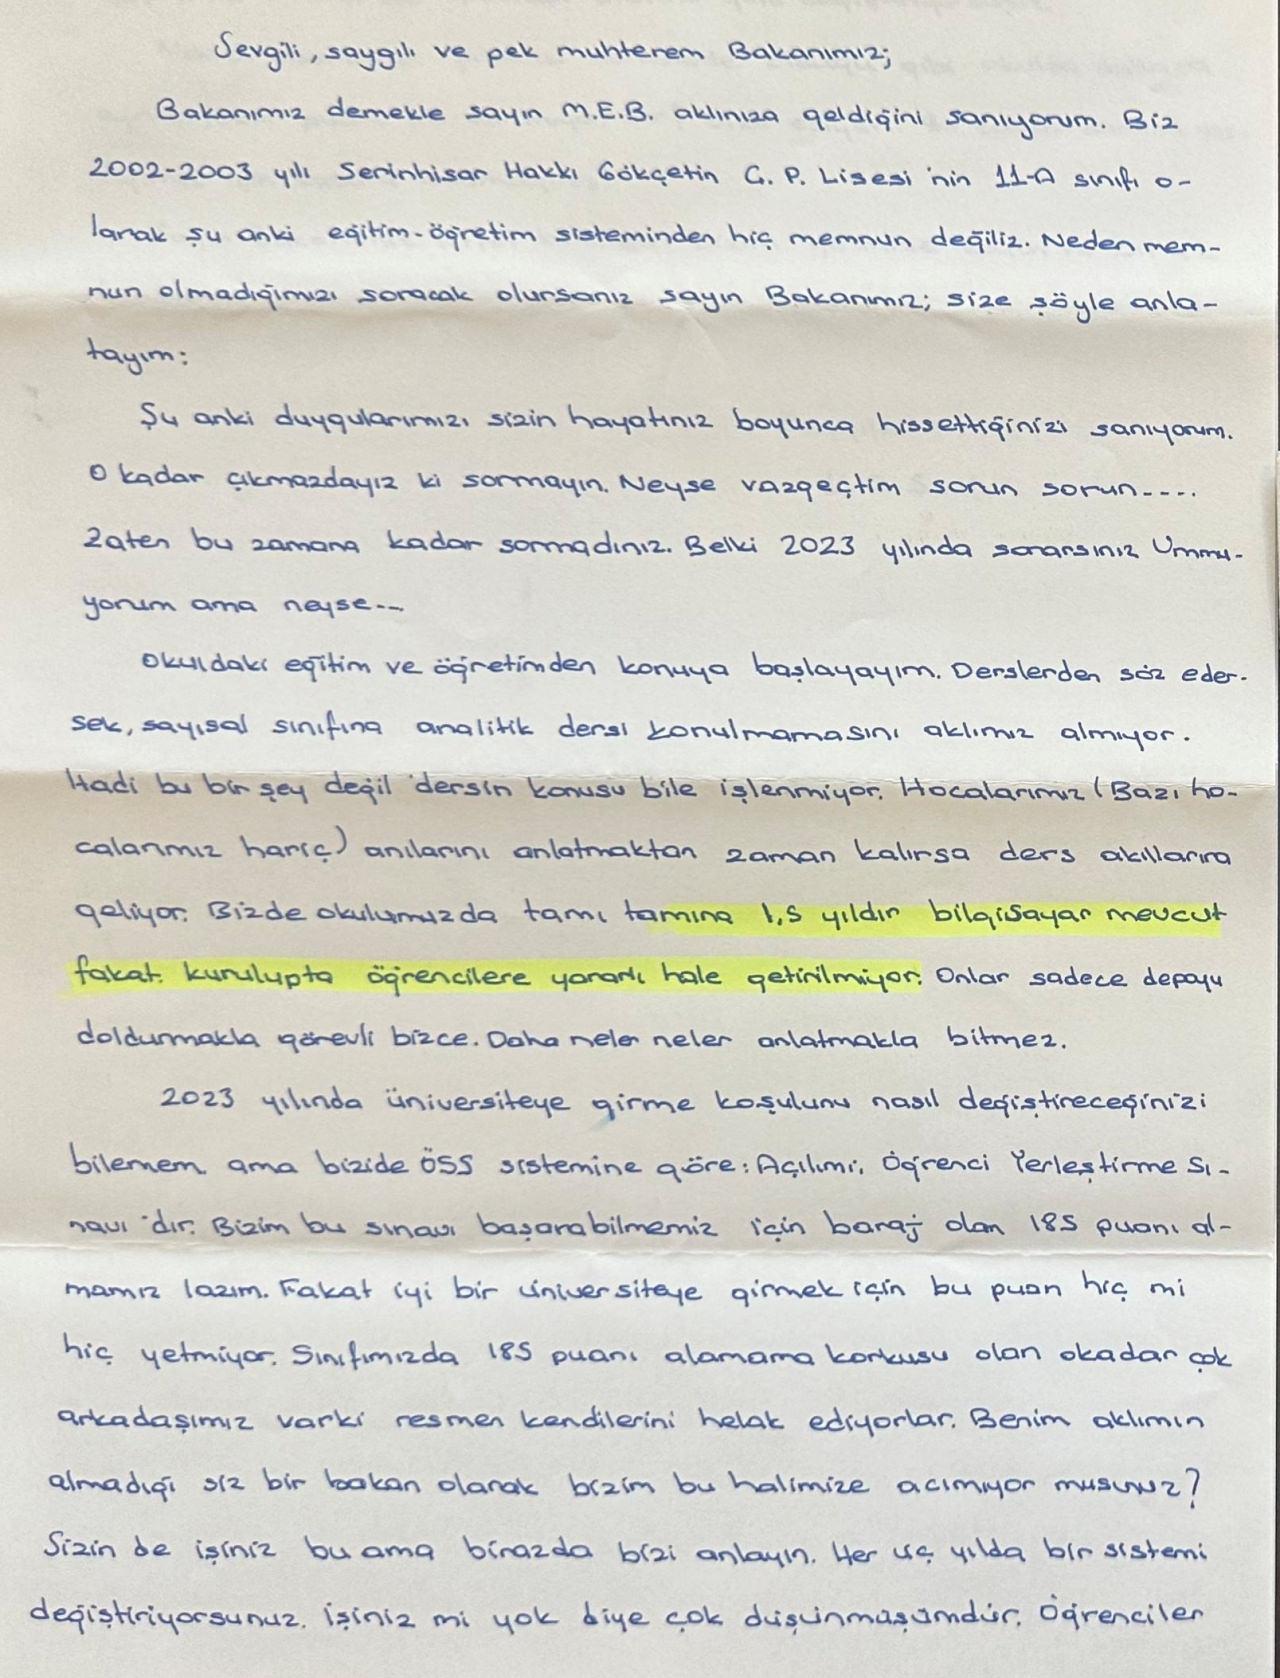 Sevgili, saygılı ve pek muhterem Bakanımız;
Bakanımız demekle sayın M.E.B. aklınıza geldiğini sanıyorum. Biz
2002-2003 yılı Serinhisar Hakkı Gökçetin G. P. Lisesi'nin 11-A sınıfı o-
larak şu anki eğitim-öğretim sisteminden hiç memnun değiliz. Neden mem-
nun olmadığımızı soracak olursanız sayın Bakanımız; size şöyle anla-
tayım:
Şu anki duygularımızı sizin hayatınız boyunca hissettiğinizi sanıyorum.
O kadar çıkmazdayız ki sormayın. Neyse vazgeçtim sorun sorun....
Zaten bu zamana kadar sormadınız. Belki 2023 yılında sorarsınız Ummu-
yorum ama neyse...
Okuldaki eğitim ve öğretimden konuya başlayayım. Derslerden söz eder-
sek, sayısal sınıfına analitik dersi konulmamasını aklımız almıyor.
Hadi bu bir şey değil dersin konusu bile işlenmiyor. Hocalarımız (Bazı ho-
calarımız hariç) anılarını anlatmaktan zaman kalırsa ders akıllarına
geliyor. Bizde okulumuzda tamı tamına 1,5 yıldır bilgisayar mevcut
fakat kurulupta öğrencilere yararlı hale getirilmiyor. Onlar sadece depoyu
doldurmakla görevli bizce. Daha neler neler anlatmakla bitmez.
2023 yılında üniversiteye girme koşulunu nasıl değiştireceğinizi
bilemem ama bizide ÖSS sistemine göre: Açılımı, Öğrenci Yerleştirme Sı-
navı'dır. Bizim bu sınavı başarabilmemiz için baraj olan 185 puanı al-
mamız lazım. Fakat iyi bir üniversiteye girmek için bu puan hiç mi
hiç yetmiyor. Sınıfımızda 185 puanı alamama korkusu olan okadar çok
arkadaşımız varki resmen kendilerini helak ediyorlar. Benim aklımın
almadığı siz bir bakan olarak bizim bu halimize acımıyor musunuz?
Sizin de işiniz bu ama birazda bizi anlayın. Her üç yılda bir sistemi
değiştiriyorsunuz. İşiniz mi yok diye çok düşünmüşümdür. Öğrenciler